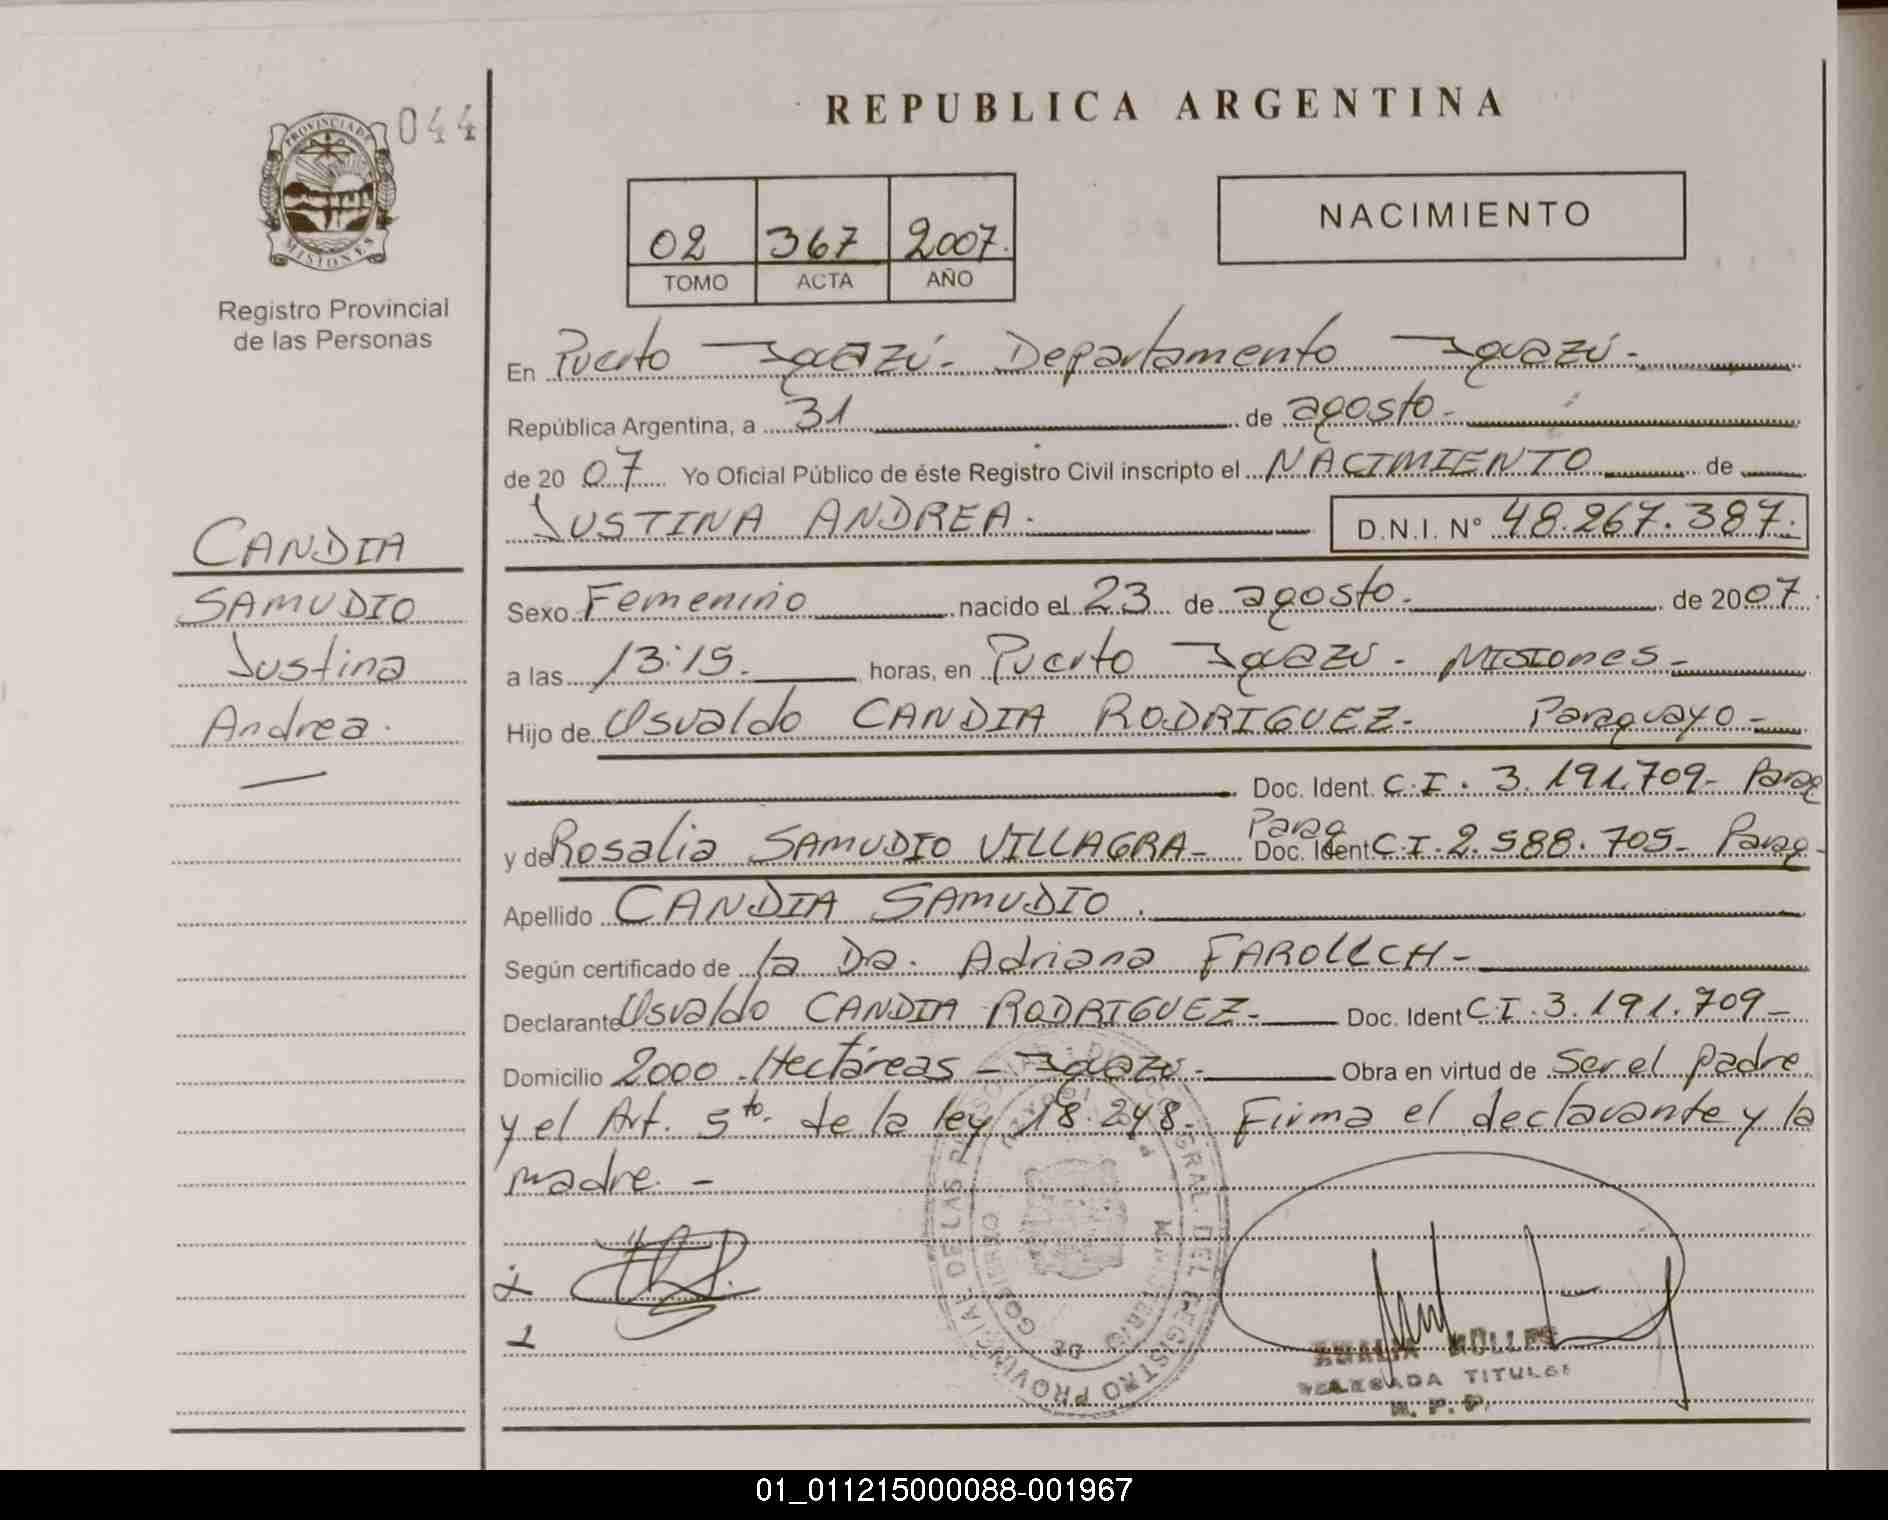 PROVINCIA DE
MISIONES
044
Registro Provincial
de las Personas
CANDIA
SAMUDIO
Justina
Andrea.
REPUBLICA ARGENTINA
02 367 2007.
TOMO ACTA AÑO
NACIMIENTO
En Puerto Iguazú - Departamento Iguazú -
República Argentina, a 31 de agosto -
de 20 07 Yo Oficial Público de éste Registro Civil inscripto el NACIMIENTO de
JUSTINA ANDREA. D.N.I. Nº 48.267.387.
Sexo Femenino nacido el 23 de agosto. de 20 07
a las 13:15. horas, en Puerto Iguazú - Misiones -
Hijo de Osvaldo CANDIA RODRIGUEZ - Paraguayo -
Doc. Ident. C.I. 3.191.709 - Parag
y de Rosalia SAMUDIO VILLAGRA - Parag Doc. Ident C.I. 2.588.705 - Parag -
Apellido CANDIA SAMUDIO.
Según certificado de la Dra. Adriana
Declarante Osvaldo CANDIA RODRIGUEZ - Doc. Ident C.I. 3.191.709 -
Domicilio 2000 Hectáreas - Iguazú - Obra en virtud de Ser el padre
y el Art. 5to. de la ley 18.248. Firma el declarante y la
madre. -
REGISTRO PROVINCIAL DE LAS PERSONAS
MINISTERIO DE GOBIERNO
MULLER
DELEGADA TITULAR
R. P. P.
01_011215000088-001967